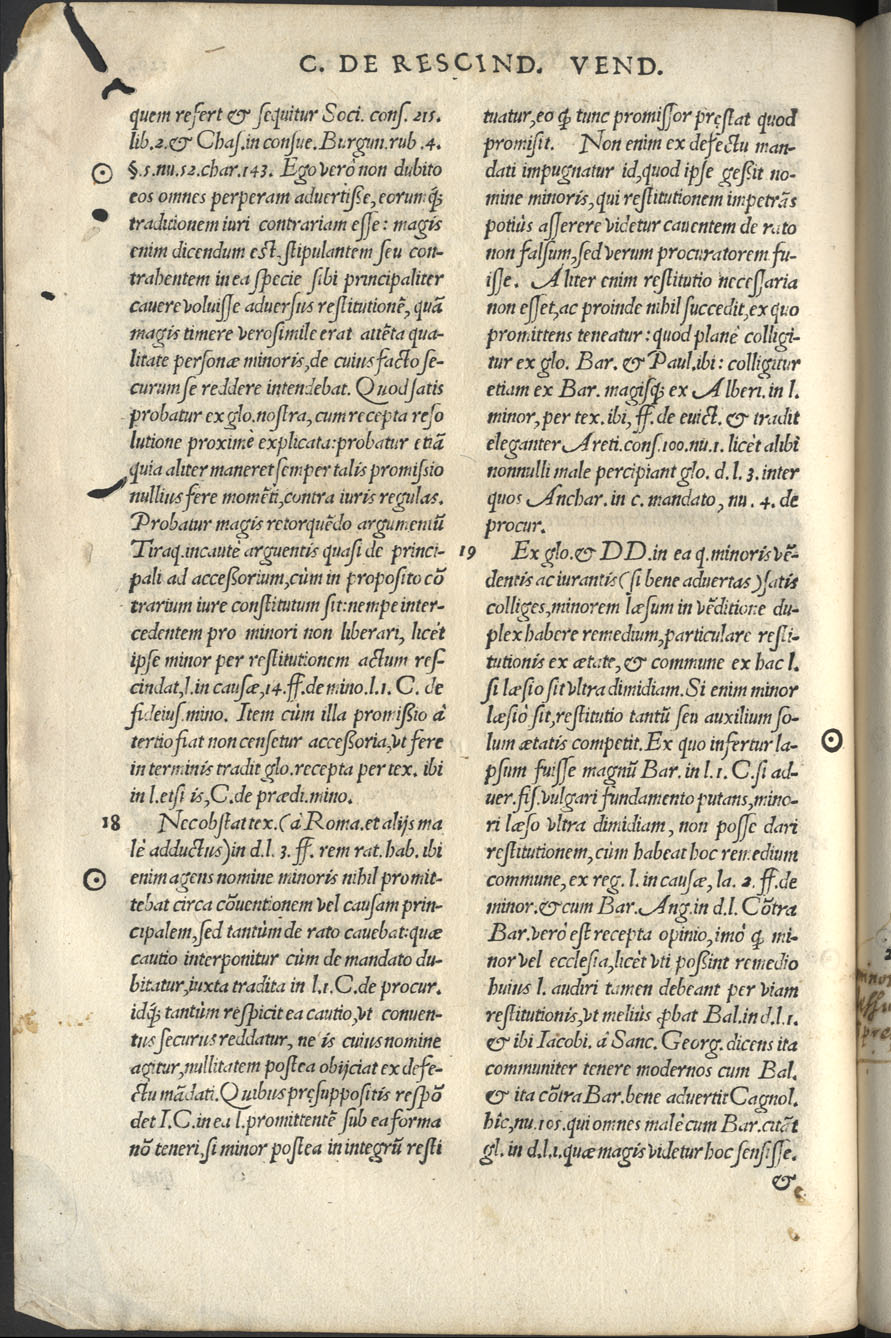 C. DE RESCIND. VEND.
quem refert & sequitur Soci. cons. 215.
lib.2.& Chas.in consue. Burgun.rub .4.
§.5.nu.52.char.143. Ego verò non dubito
eos omnes perperam advertiße, eorumq́;
traditionem iuri contrariam esse: magis
enim dicendum est, stipulantem seu con-
trahentem in ea specie sibi principaliter
cauere voluisse aduersus restitutionẽ, quã
magis timere verosimile erat attẽta qua-
litate personæ minoris, de cuius facto se-
curum se reddere intendebat. Quod satis
probatur ex glo.nostra, cum recepta reso
lutione proximè explicata:probatur etiã
quia aliter maneret semper talis promissio
nullius fere momẽti,contra iuris regulas.
Probatur magis retorquẽdo argumentũ
Tiraq.incautè arguentis quasi de princi-
pali ad acceßorium,cùm in proposito cõ
trarium iure constitutum sit:nempe inter-
cedentem pro minori non liberari, licèt
ipse minor per restitutionem actum res-
cindat,l.in causæ,14.ff.de mino.l.1. C. de
fideius.mino. Item cùm illa promißio à
tertio fiat non censetur acceßoria,vt fere
in terminis tradit glo.recepta per tex. ibi
in l.etsi is,C.de prædi.mino.
18 Nec obstat tex.(à Roma.et alijs ma
lè adductus)in d.l. 3. ff. rem rat. hab. ibi
enim agens nomine minoris nihil promit-
tebat circa cõuentionem vel causam prin-
cipalem,sed tantùm de rato cauebat:quæ
cautio interponitur cùm de mandato du-
bitatur,iuxta tradita in l.1.C.de procur.
idq́; tantùm respicit ea cautio,vt conuen-
tus securus reddatur, ne is cuius nomine
agitur,nullitatem postea obijciat ex defe-
ctu mãdati. Quibus pręsuppositis respõ
det I.C.in ea l.promittentẽ sub ea forma
nõ teneri,si minor postea in integrũ resti
tuatur,eo ꝙ tunc promissor pręstat quod
promisit. Non enim ex defectu man-
dati impugnatur id,quod ipse geßit no-
mine minoris, qui restitutionem impetrãs
potiùs asserere videtur cauentem de rato
non falsum,sed verum procuratorem fu-
isse. Aliter enim restitutio necessaria
non esset,ac proinde nihil succedit,ex quo
promittens teneatur : quod planè colligi-
tur ex glo. Bar. & Paul.ibi: colligitur
etiam ex Bar. magisq́; ex Alberi. in l.
minor, per tex. ibi, ff. de euict. & tradit
eleganter Areti.cons.100.nu.1. licèt alibi
nonnulli male percipiant glo. d. l. 3. inter
quos Anchar. in c. mandato, nu. 4. de
procur.
19 Ex glo.& DD.in ea q.minoris vẽ-
dentis ac iurantis(si bene aduertas)satis
colliges,minorem læsum in vẽditione du-
plex habere remedium,particulare resti-
tutionis ex ætate, & commune ex hac l.
si læsio sit vltra dimidiam. Si enim minor
læsio sit,restitutio tantũ seu auxilium so-
lum ætatis competit. Ex quo infertur la-
psum fuisse magnũ Bar. in l. 1. C.si ad-
uer.fis.vulgari fundamento putans,mino-
ri læso vltra dimidiam, non posse dari
restitutionem,cùm habeat hoc remedium
commune,ex reg. l. in causæ, la. 2. ff.de
minor.& cum Bar. Ang.in d.l. Cõtra
Bar.verò est recepta opinio,imò ꝙ mi-
nor vel ecclesia,licèt vti poßint remedio
huius l. audiri tamen debeant per viam
restitutionis,vt meliùs ꝓbat Bal.in d.l.1.
& ibi Iacobi. à Sanc. Georg. dicens ita
communiter tenere modernos cum Bal.
& ita cõtra Bar.bene aduertit Cagnol.
hîc,nu.105.qui omnes malè cum Bar.citãt
gl. in d.l.1.quæ magis videtur hoc sensisse.
&